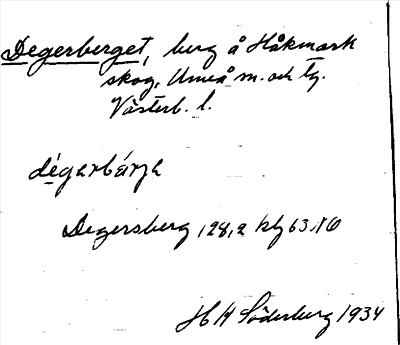 Degerberget, berg å Håkmark
skog, Umeå m. och tg.
Västerb. l.
dégarbárja
Degersberg 128,2 klg 63.NO
H H Söderberg 1934